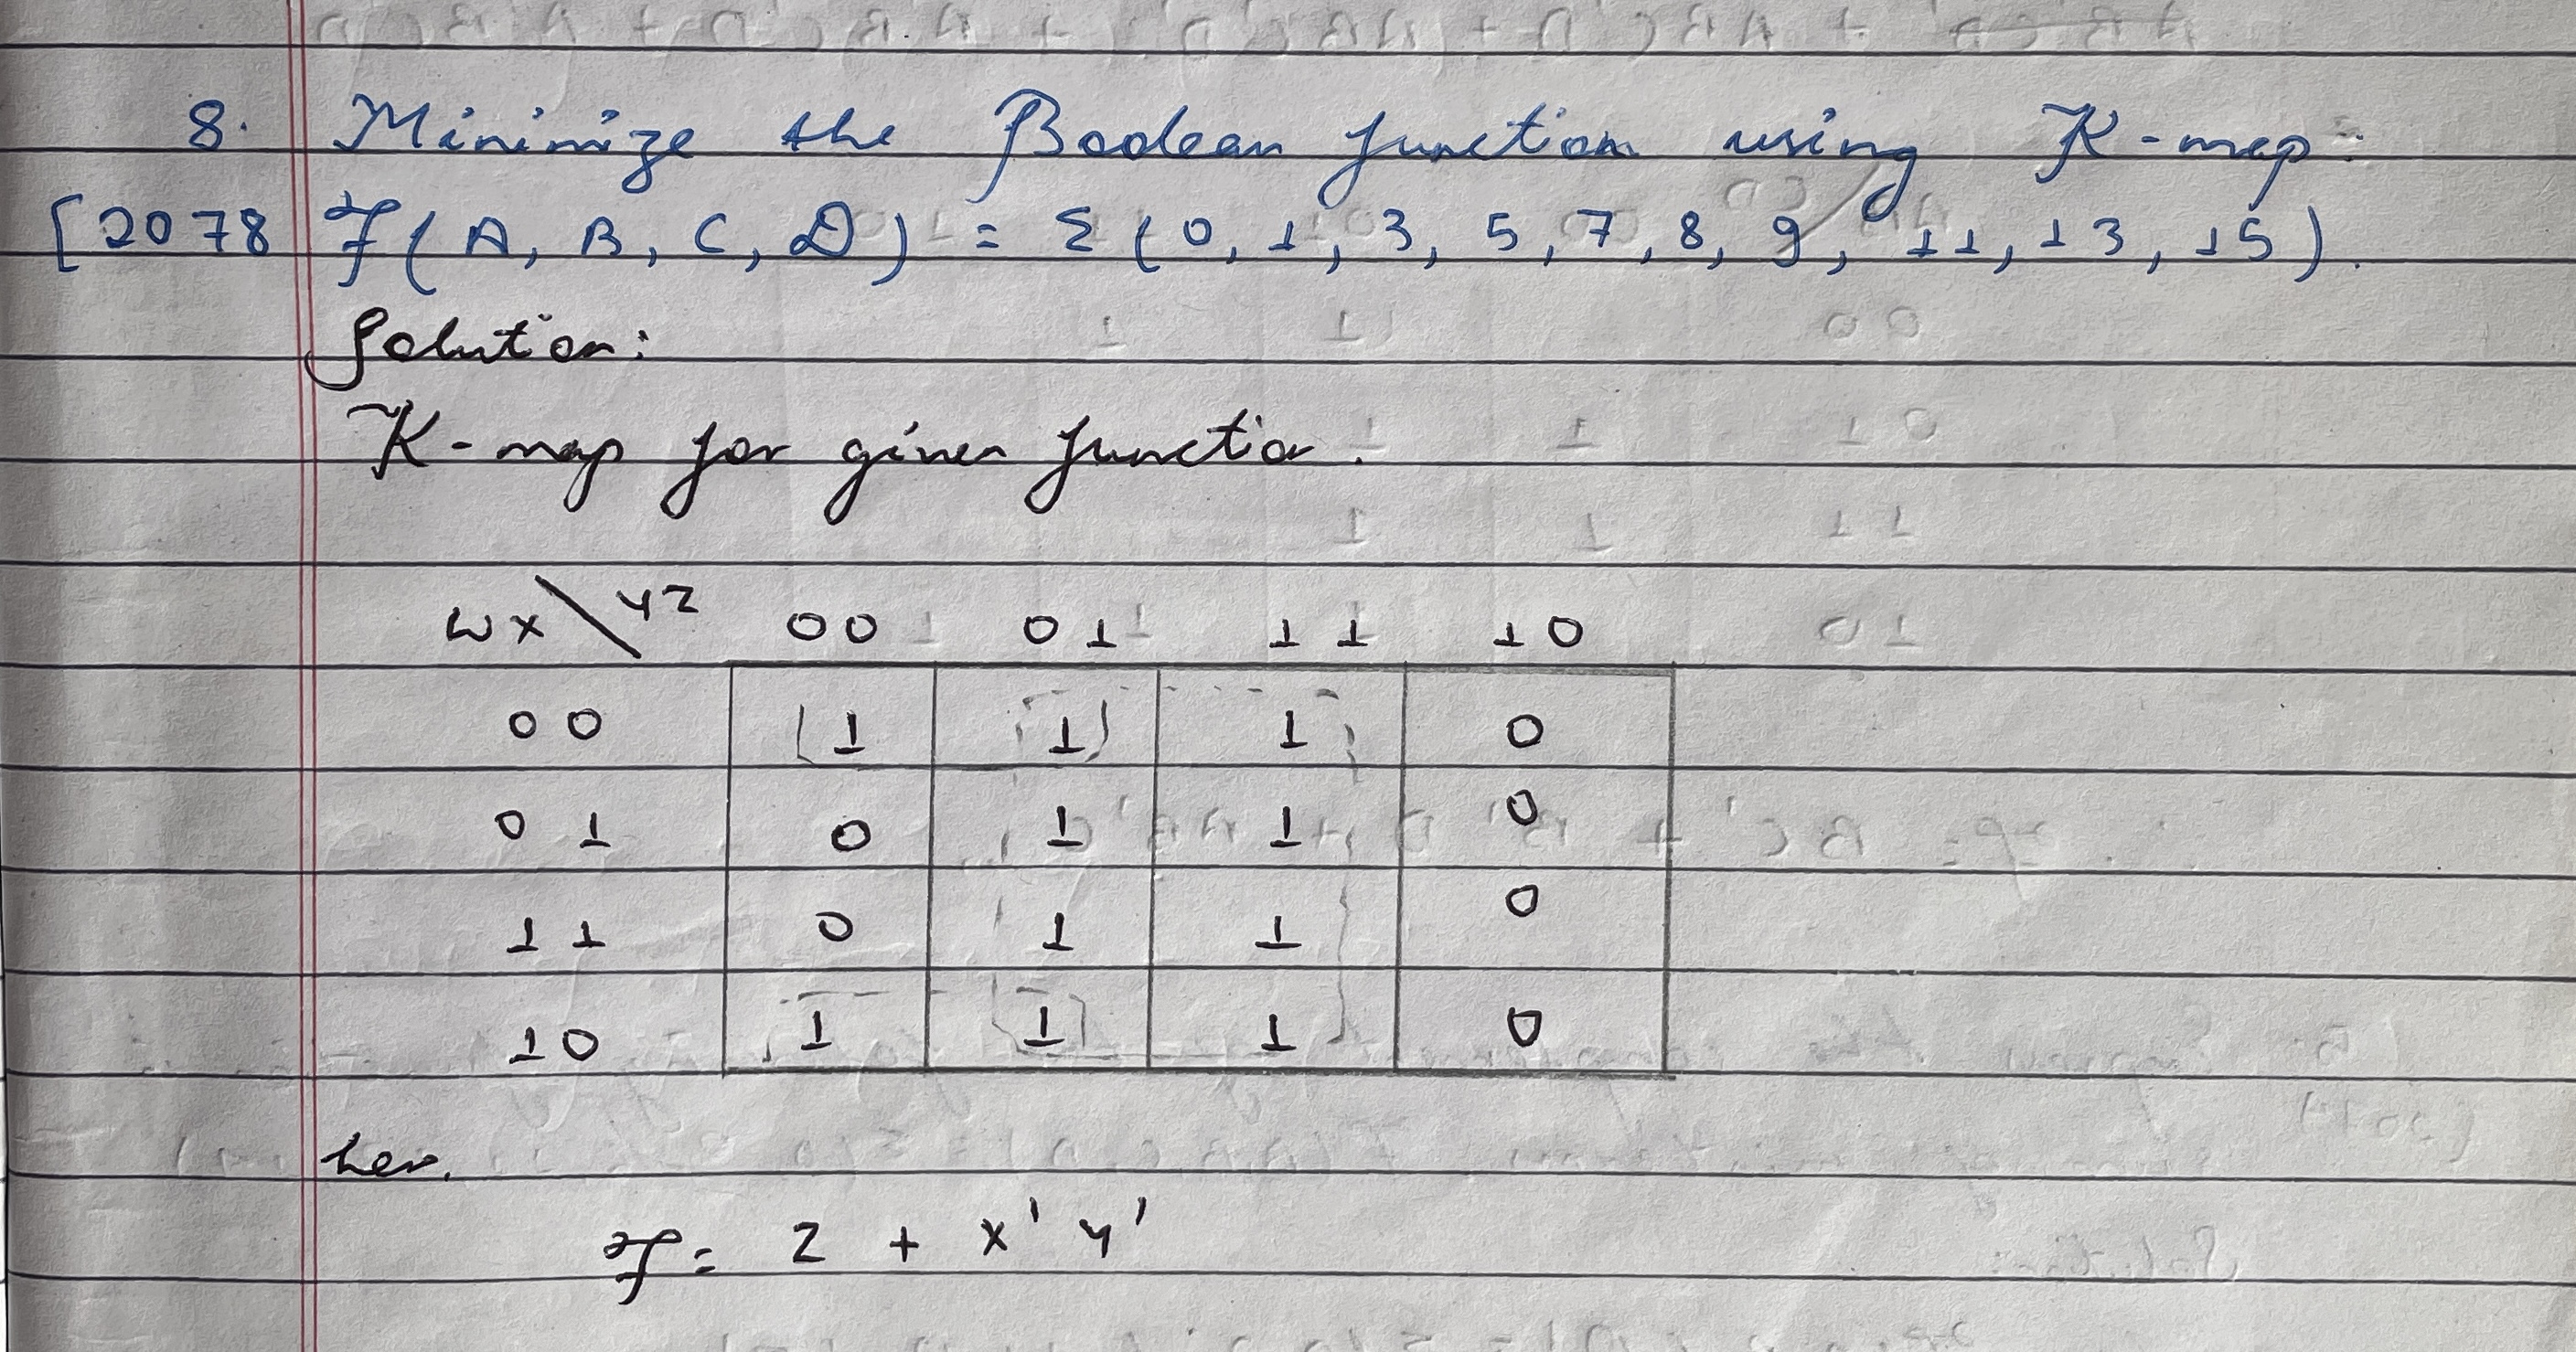 8. Minimize the Boolean function using K-map:
[2078 F(A, B, C, D) = Σ (0, 1, 3, 5, 7, 8, 9, 11, 13, 15).
Solution:
K-map for given function.
wx\yz 00 01 11 10
00 1 1 1 0
01 0 1 1 0
11 0 1 1 0
10 1 1 1 0
F= z + x' y'